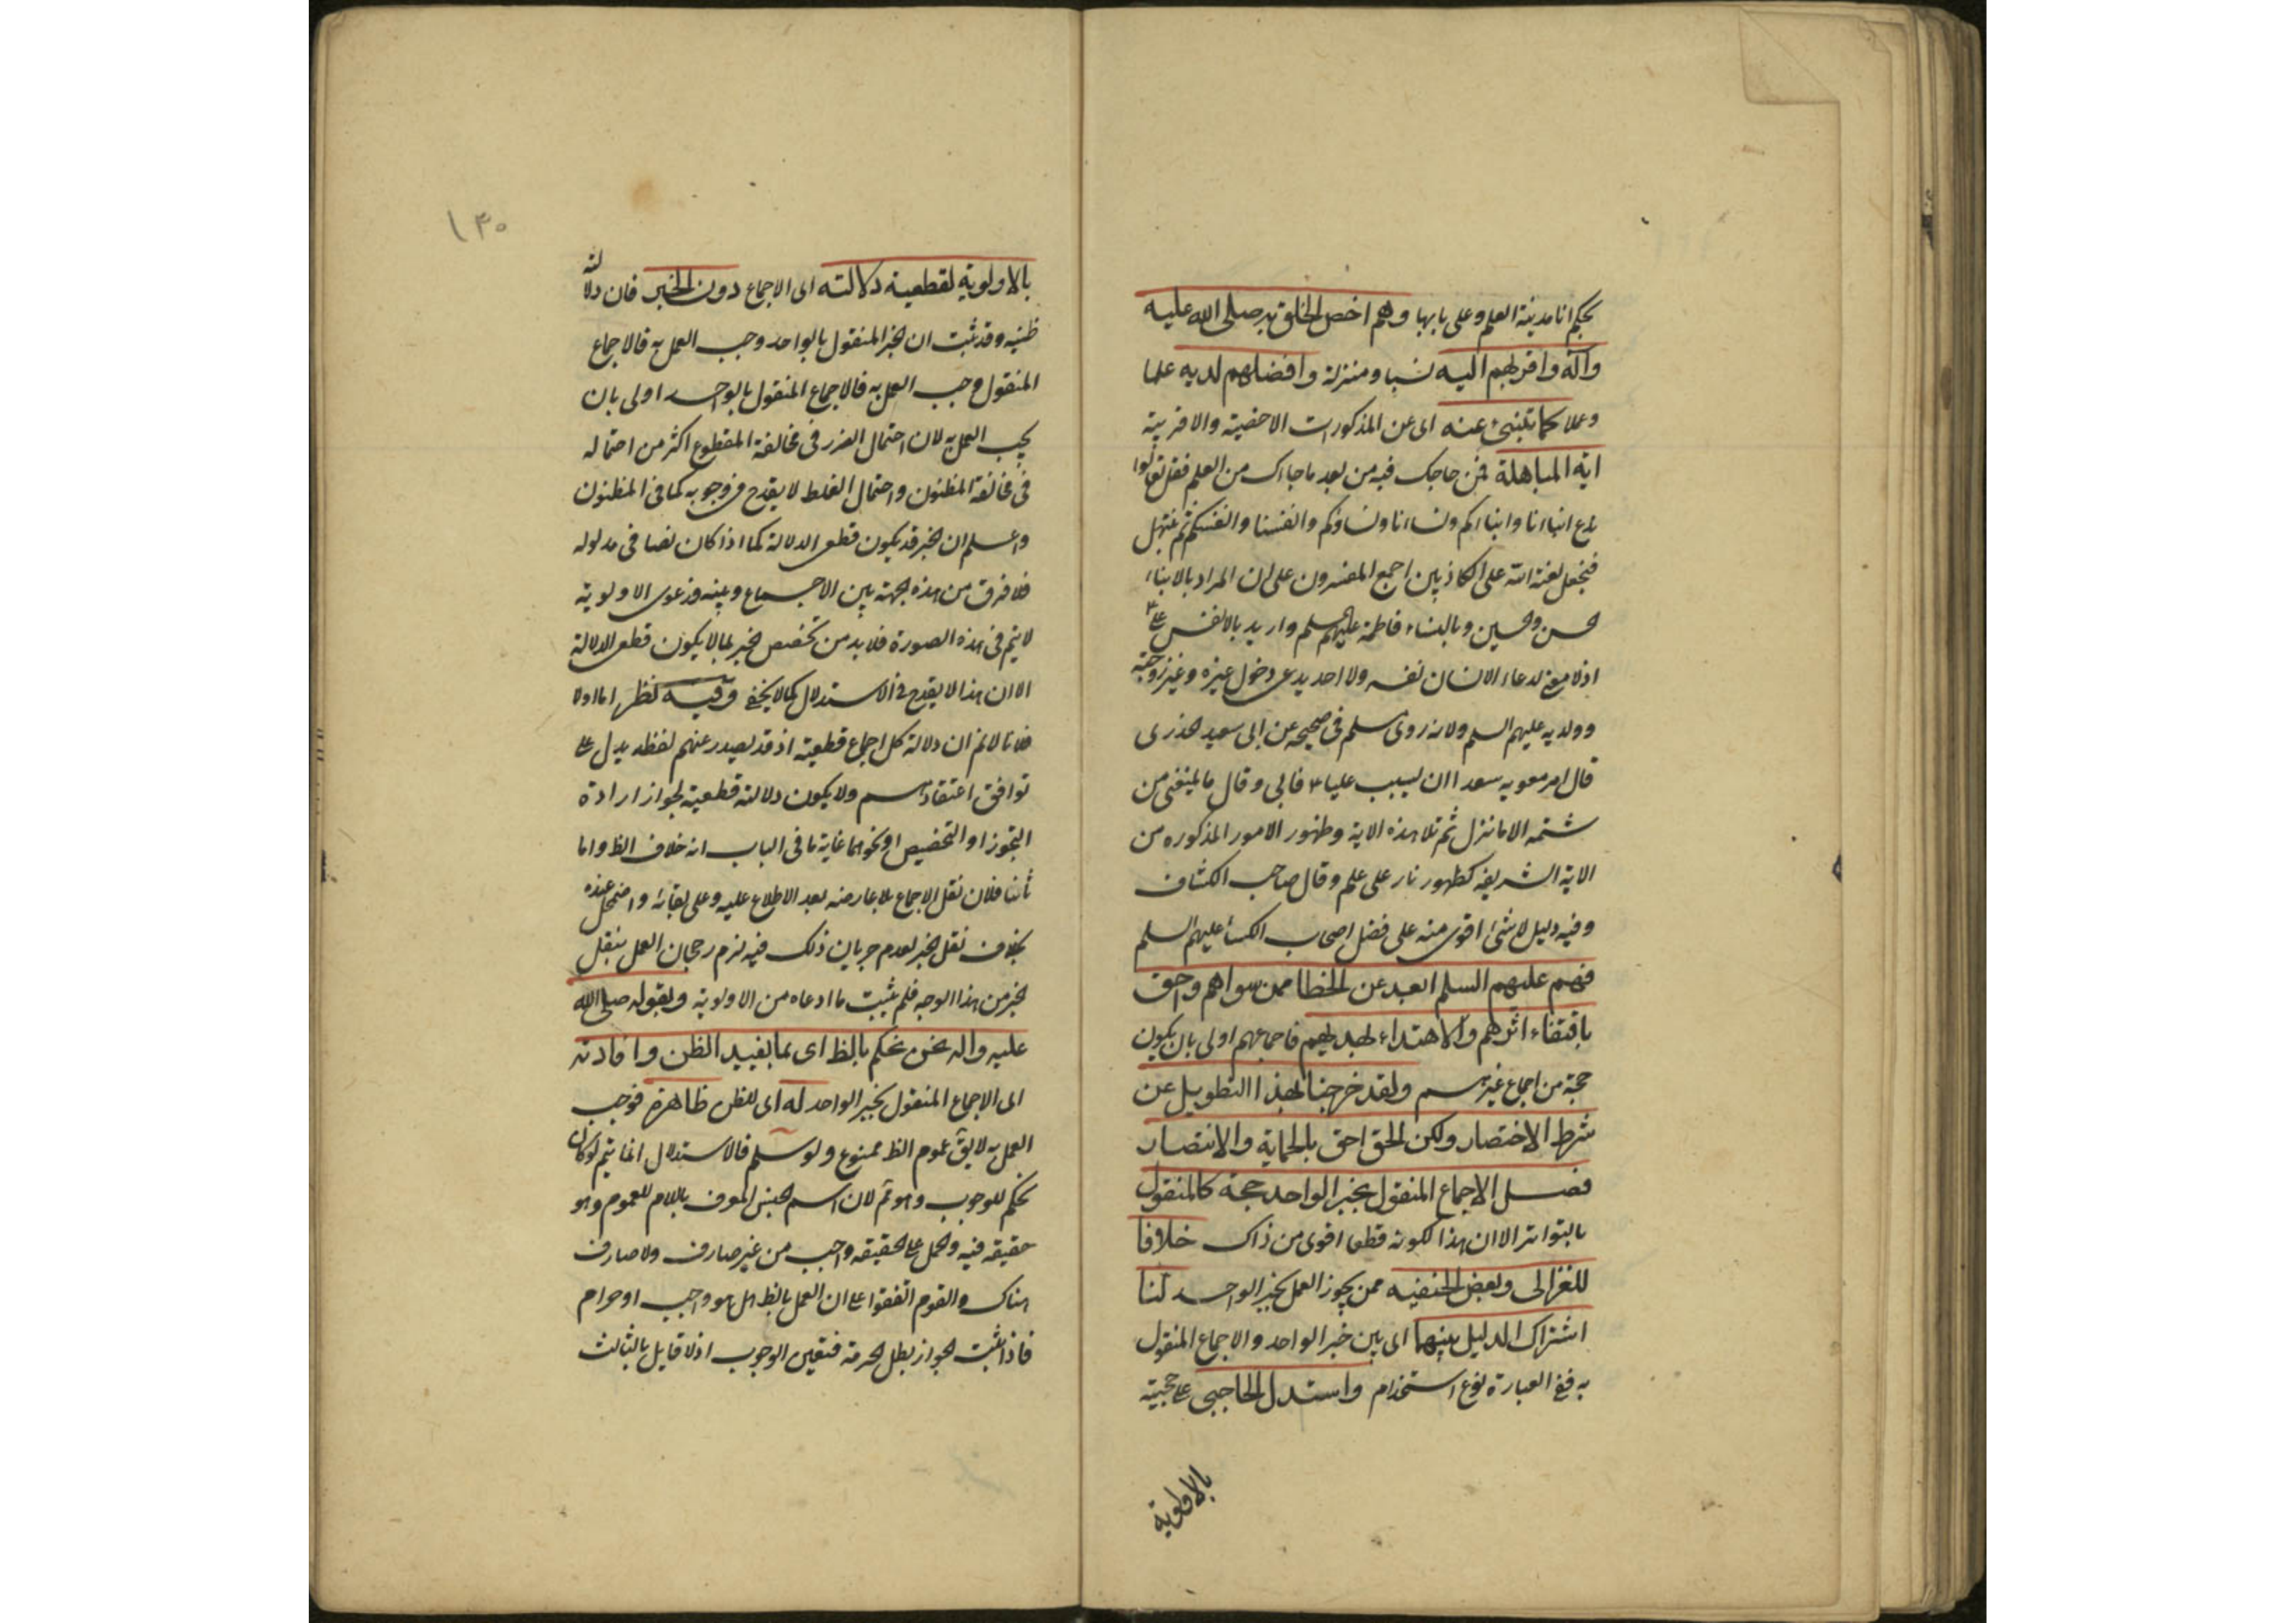 بحكم انا مدينة العلم وعلى بابها وهم اخص الخلق به صلى الله عليه
وآله واقربهم اليه نسبا ومنزلة وافضلهم لديه علما
وعملا كما تنبئ عنه اى عن المذكورات الاخصية والاقربية
اية المباهلة فمن حاجك فيه من بعد ما جاءك من العلم فقل تعالوا
ندع ابناءنا وابناءكم ونساءنا ونساؤكم وانفسنا وانفسكم ثم نبتهل
فنجعل لعنة الله على الكاذبين اجمع المفسرون على ان المراد بالابناء
الحسن والحسين وبالنساء فاطمة عليهم السلم واريد بالانفس على ع
اذ لا معنى لدعاء الانسان نفسه ولا احد يدعى دخول غيره وغير زوجته
وولديه عليهم السلم ولانه روى مسلم فى صحيحه عن ابى سعيد الخدرى
قال امر معويه سعدا ان يسبب عليا ع فابى وقال ما يمنعنى من
شتمه الا ما نزل ثم تلا هذه الاية وظهور الامور المذكوره من
الاية الشريفه كظهور نار على علم وقال صاحب الكشاف
وفيه دليل لا شئ اقوى منه على فضل اصحاب الكساء عليهم السلم
فهم عليهم السلم ابعد عن الخطا ممن سواهم واحق
باقتفاء اثرهم والاهتداء بهديهم فاجماعهم اولى بان يكون
حجة من اجماع غيرهم ولقد خرجنا بهذا التطويل عن
شرط الاختصار ولكن الحق احق بالحماية والانتصار
فصل الاجماع المنقول بخبر الواحد حجة كالمنقول
بالتواتر الا ان هذا لكونه قطعا اقوى من ذاك خلافا
للغزالى وبعض الحنفيه ممن يجوز العمل بخبر الواحد لنا
اشتراك الدليل بينهما اى بين خبر الواحد والاجماع المنقول
به ففى العبارة نوع استخدام واستدل الحاجبى على حجيته
بالاولوية
١٣٠
بالاولوية لقطعية دلالته اى الاجماع دون الخبر فان دلالته
ظنيه وقد ثبت ان الخبر المنقول بالواحد وجب العمل به فالاجماع
المنقول وجب العمل به فالاجماع المنقول بالواحد اولى بان
يجب العمل به لان احتمال الضرر فى مخالفة المقطوع اكثر من احتماله
فى مخالفة المظنون واحتمال الغلط لا يقدح فى وجوبه كما فى المظنون
واعلم ان الخبر قد يكون قطعى الدلالة كما اذا كان نصا فى مدلوله
فلا فرق من هذه الجهة بين الاجماع وبينه فدعوى الاولوية
لا يتم فى هذه الصورة فلا بد من تخصيص الخبر بما لا يكون قطعى الدلالة
الا ان هذا لا يقدح فى الاستدلال كما لا يخفى وفيه نظر اما اولا
فلانا لانم ان دلالة كل اجماع قطعية اذ قد يصدر عنهم لفظ يدل على
توافق اعتقادهم ولا يكون دلالته قطعية لجواز ارادة
التجوز او التخصيص او نحوهما غاية ما فى الباب انه خلاف الظ واما
ثانيا فلان نقل الاجماع بلا عارضه بعد الاطلاع عليه وعلى بقائه واضمحل عنده
بخلاف نقل الخبر لعدم جريان ذلك فيه لزم رجحان العمل بنقل
الخبر من هذا الوجه فلم يثبت ما ادعاه من الاولوية وبقوله صلى الله
عليه واله نحن نحكم بالظ اى بما يفيد الظن وافادته
اى الاجماع المنقول بخبر الواحد له اى للظن ظاهرة فوجب
العمل به لا يق عموم الظ ممنوع ولو سلم فالاستدلال انما يتم لو كان
نحكم للوجوب وهو ثم لان اسم الجنس المعرف باللام للعموم وهو
حقيقه فيه والحمل على الحقيقه واجب من غير صارف ولا صارف
هناك والقوم اتفقوا على ان العمل بالظ اهل هو واجب او حرام
فاذا ثبت الجواز بطل الحرمة فتعين الوجوب اذ لا قايل بالثالث